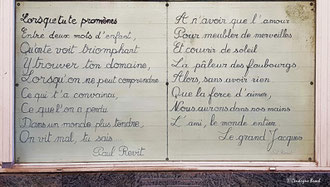 Lorsque tu te promènes
Entre deux mots d'enfant,
Qu'inté voit triomphant
Y trouver ton domaine,
Lorsqu'on ne peut comprendre
Ce qui t'a convaincu,
Ce que l'on a perdu
Dans un monde plus tendre,
On vit mal, tu sais
Paul Revit
A n'avoir que l'amour
Pour meubler de merveilles
Et couvrir de soleil
La pâleur des faubourgs
Alors sans avoir rien
Que la force d'aimer,
Nous aurons dans nos mains
L'ami, le monde entier
Le grand Jacques